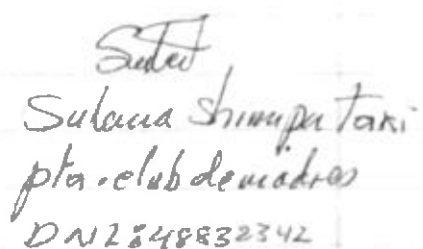 Sulana Shumpa Taki
pta. club de madres
DNI 2:48832342